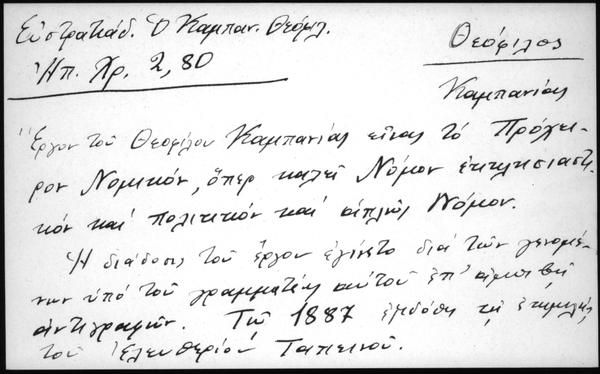 Εὐστρατιάδ. Ὁ Καμπαν. Θεόφιλ.
Ἠπ. Χρ. 2, 80
Θεόφιλος
Καμπανίας
Ἔργον τοῦ Θεοφίλου Καμπανίας εἶναι τό Πρόχει-
ρον Νομικόν, ὅπερ καλεῖ Νόμον ἐκκλησιαστι-
κόν καί πολιτικόν καί ἁπλῶς Νόμον.
Ἡ διάδοσις τοῦ ἔργου ἐγίνετο διά τῶν γενομέ-
νων ὑπό τοῦ γραμματέως αὐτοῦ ἐπ' ἀμοιβῇ
ἀντιγραφῶν. Τῷ 1887 ἐξεδόθη τῇ ἐπιμελείᾳ
τοῦ Ἐλευθερίου Ταπεινοῦ.